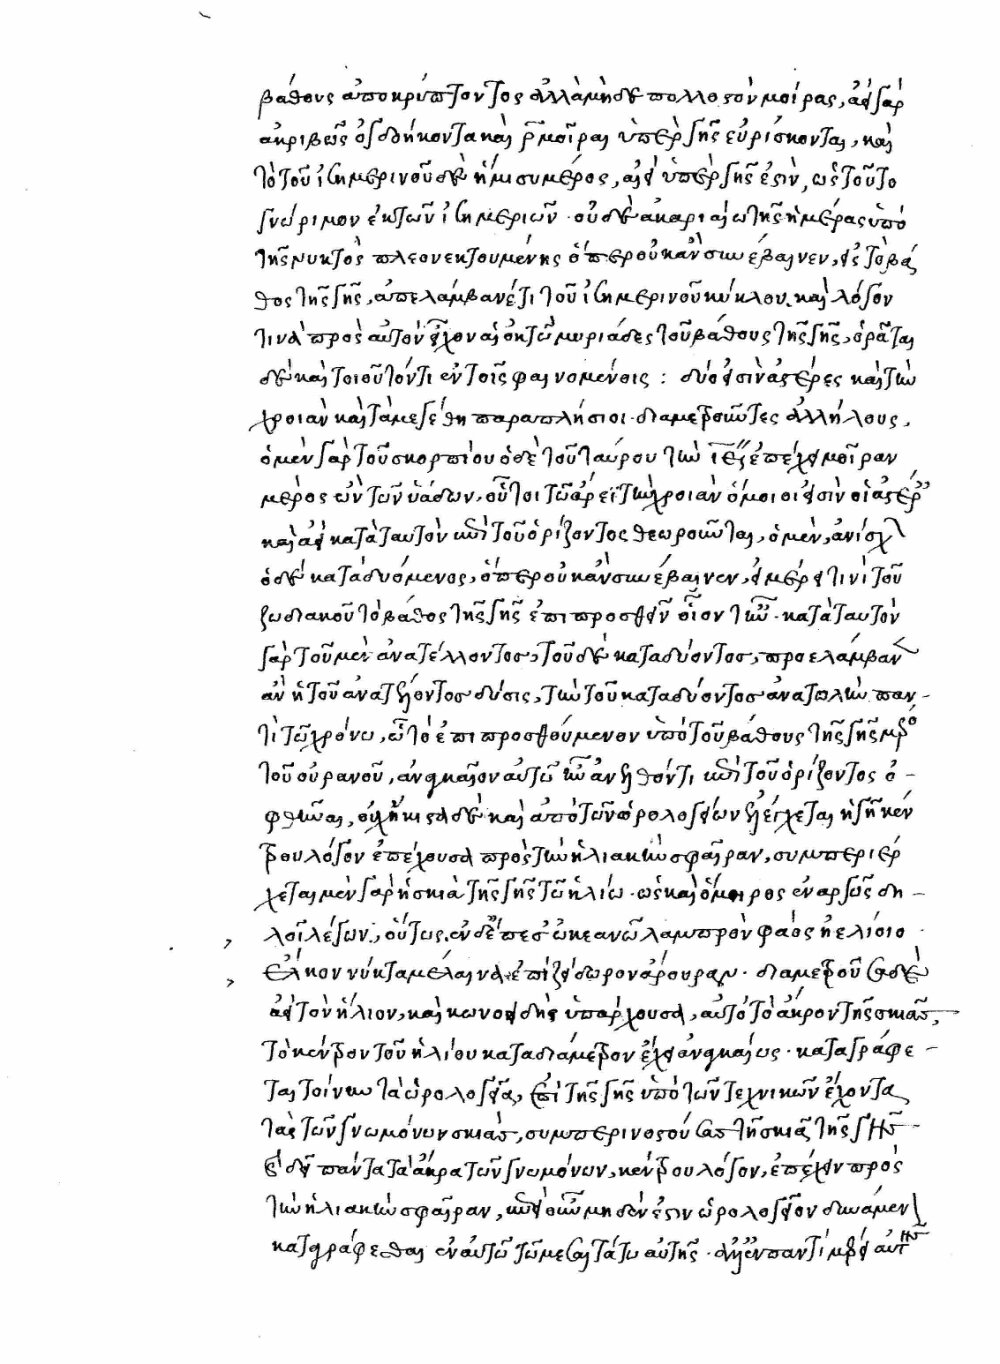 βάθους ἀποκρύπτοντος ἀλλὰ μὴ δὲ πολλοστὸν μοίρας, ἀεὶ γὰρ
ἀκριβῶς ὀγδοήκοντα καὶ ρ̄ μοῖραι ὑπὲρ γῆς εὑρίσκονται, καὶ
τὸ τοῦ ἰσημερινοῦ δὲ ἥμισυ μέρος, αἰεὶ ὑπὲρ γῆς ἐστιν, ὡς τοῦτο
γνώριμον ἐκ τῶν ἰσημεριῶν· οὐδὲ ἀκαριαίω τῆς ἡμέρας ὑπὸ
τῆς νυκτὸς πλεονεκτουμένης ὅπερ οὐκ ἂν συνέβαινεν, εἰ τὸ βά
θος τῆς γῆς, ἀπελάμβανέ τι τοῦ ἰσημερινοῦ κύκλου, καὶ λόγον
τινὰ πρὸς αὐτὸν εἶχον αἱ ὀκτὼ μυριάδες τοῦ βάθους τῆς γῆς, ὁρᾶται
δὲ καὶ τοιοῦτόν τι ἐν τοῖς φαινομένοις : δύο εἰσὶν ἀστέρες καὶ τὴν
χροιὰν καὶ τὰ μεγέθη παραπλήσιοι· διαμετροῦντες ἀλλήλους,
ὁ μὲν γὰρ τοῦ σκορπίου ὁ δὲ τοῦ ταύρου τὴν ῑε ἐπέχει μοῖραν
μέρος ὢν τῶν ὑάδων, οὗτοι τῶ ἄρεϊ τὴν χροιὰν ὅμοιοι εἰσὶν οἱ ἀστέρ
καὶ ἀεὶ κατὰ ταυτὸν ἐπὶ τοῦ ὁρίζοντος θεωροῦνται, ὁ μὲν, ἀνίσχ
ὁ δὲ καταδυόμενος, ὅπερ οὐκ ἂν συνέβαινεν, εἰ μέρει τινὶ τοῦ
ζωδιακοῦ τὸ βάθος τῆς γῆς ἐπιπροσθεῖν οἷον τ' ἦν· κατὰ ταυτὸν
γὰρ τοῦ μὲν ἀνατέλλοντος, τοῦ δὲ καταδύοντος, προελάμβαν
ἂν ἡ τοῦ ἀνατέλλοντος δύσις, τὴν τοῦ καταδύοντος ἀνατολὴν παν-
τὶ τῶ χρόνω, ᾧ τὸ ἐπιπροσθούμενον ὑπὸ τοῦ βάθους τῆς γῆς μρο
τοῦ οὐρανοῦ, ἀναγκαῖον αὐτῶ ἦν ἀνελθόντι ἐπὶ τοῦ ὁρίζοντος ὀ-
φθῆναι, οὐχ ἥκιστα δὲ καὶ ἀπὸ τῶν ὡρολογείων ἐλέγχεται ἡ γῆ κέν
τρου λόγον ἐπέχουσα πρὸς τὴν ἡλιακὴν σφαῖραν, συμπεριέρ
χεται μὲν γὰρ ἡ σκιὰ τῆς γῆς τῶ ἡλίω· ὡς καὶ ὅμηρος ἐναργῶς δη-
λοῖ λέγων, οὕτως. ἐν δ' ἔπεσ' ὠκεανῶ λαμπρὸν φάος ἠελίοιο
ἕλκον νύκτα μέλαιναν ἐπὶ ζείδωρον ἄρουραν· διαμετροῦσα δὲ
ἀεὶ τὸν ἥλιον, καὶ κωνοειδὴς ὑπάρχουσα, αὐτὸ τὸ ἄκρον τῆς σκιᾶς,
τὸ κέντρον τοῦ ἡλίου κατα διάμετρον ἔχει ἀναγκαίως· καταγράφε-
ται τοίνυν τὰ ὡρολογεῖα, ἐπὶ τῆς γῆς ὑπὸ τῶν τεχνικῶν ἔχοντα
τὰς τῶν γνωμόνων σκιάς, συμπερινοστούσας τῆ σκιᾶ τῆς γῆς-
εἰ δὴ πάντα τὰ ἄκρα τῶν γνωμόνων, κέντρου λόγον, ἐπέχει πρὸς
τὴν ἡλιακὴν σφαῖραν, ἐπεὶ οὖν μηδέν ἐστιν ὡρολογεῖον δυνάμεν
καταγράφεσθαι ἐν αὐτῶ τῶ μεσαιτάτω αὐτῆς· ἀλλ' ἐν παντὶ μέρει αὐτῆς